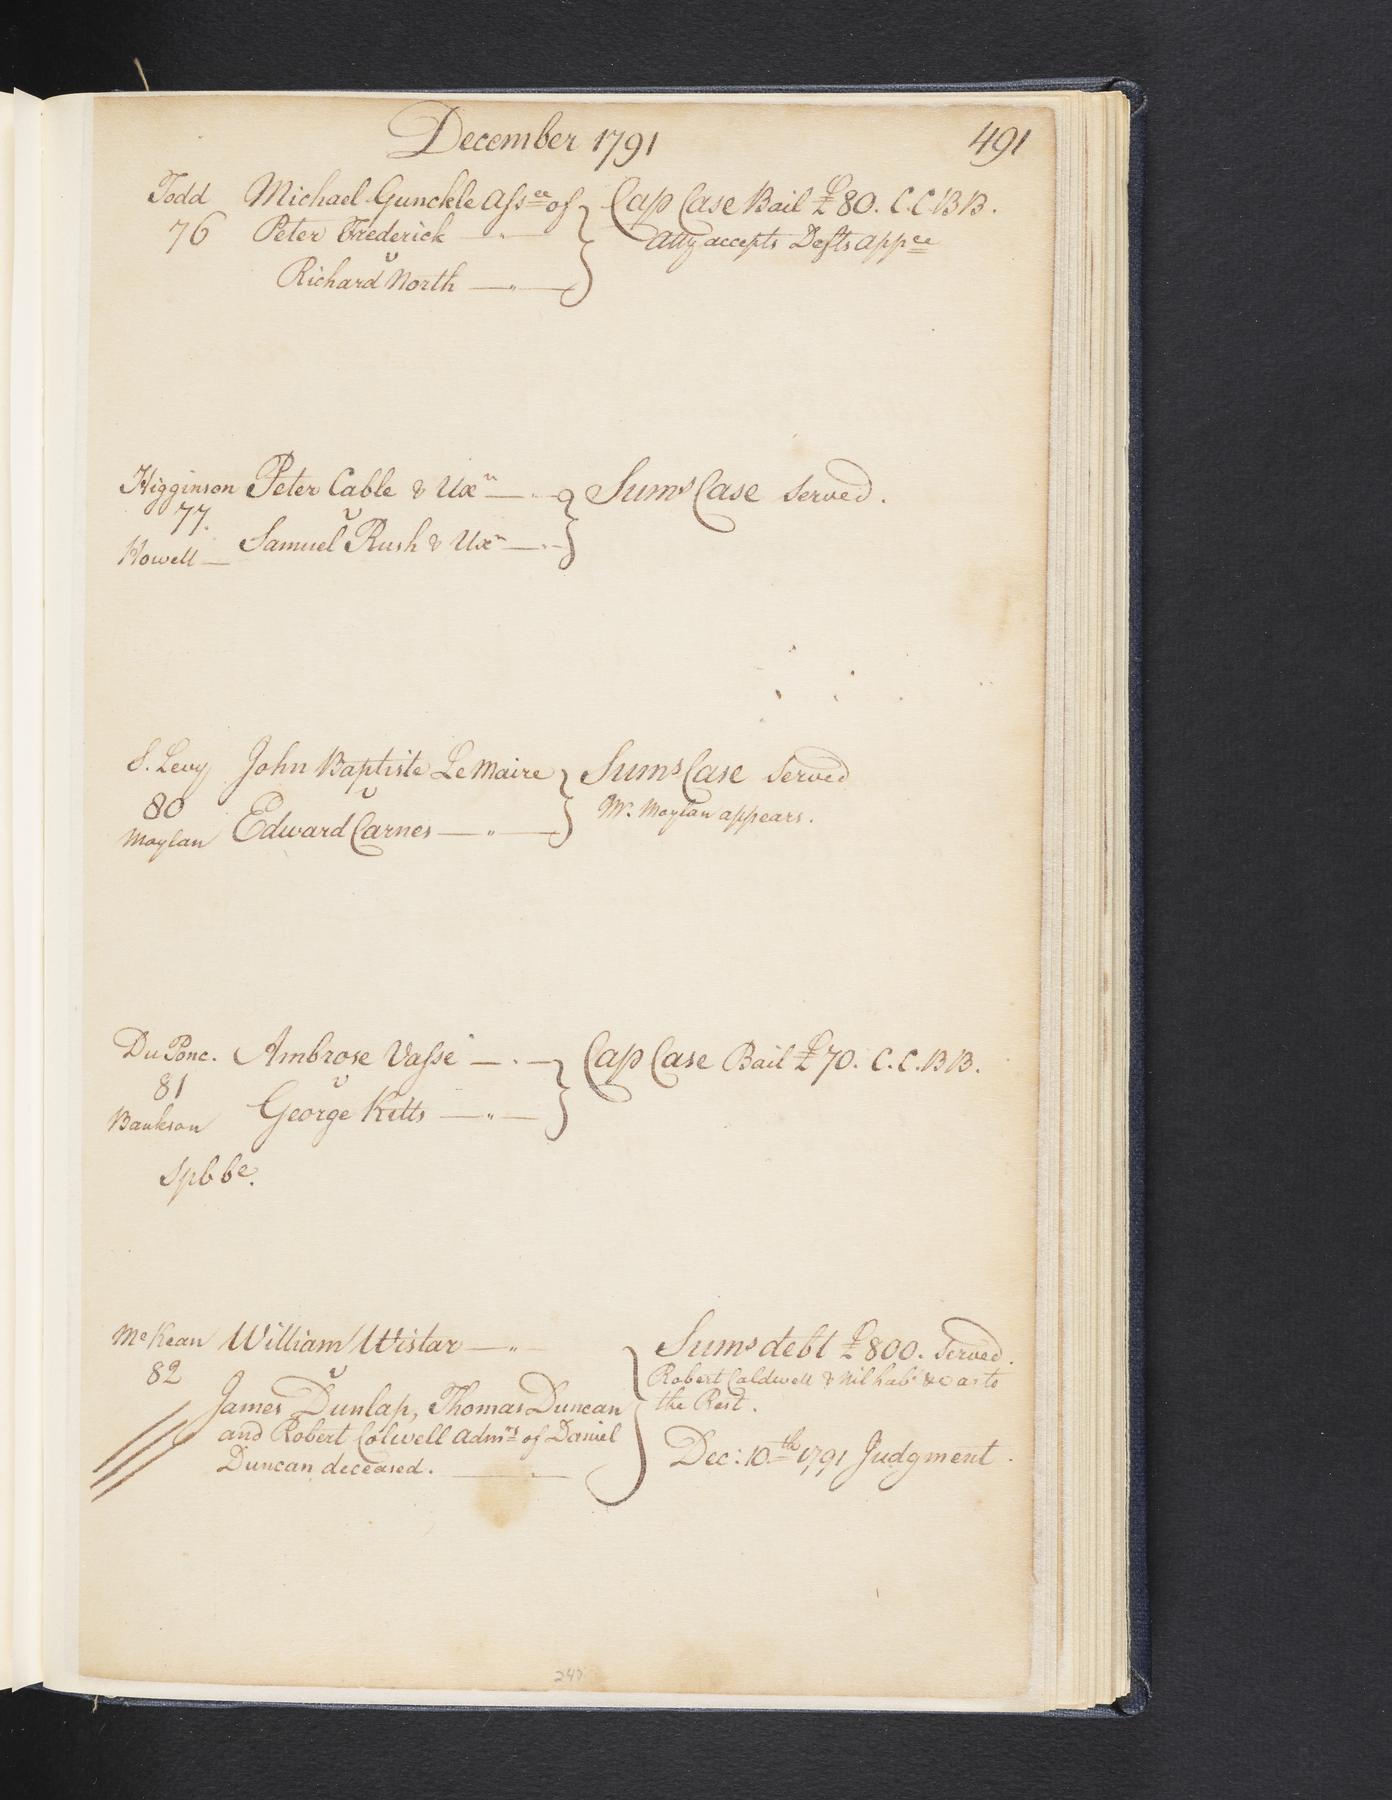 December 1791 491
Todd Michael Gunckle Assee of Cap Case Bail £80. C.C.BB.
76 Peter Frederick Atty accepts Defts appce
v
Richard North
Higginson Peter Cable & Uxr Sums Case Served.
77. v
Howell Samuel Rush & Uxr
S. Levy John Baptiste Le Maire Sums Case Served
80 v Mr. Moylan appears.
Moylan Edward Carnes
Du Ponc. Ambrose Vasse Cap Case Bail £70. C.C.BB.
81 v
Bankson George Kitts
Spb be.
McKean William Wistar Sums debt £800. Served.
82 v Robert Caldwell & Nil habt &c as to
James Dunlap, Thomas Duncan the Rest.
and Robert Colwell Admrs of Daniel
Duncan deceased. Dec: 10th 1791 Judgment.